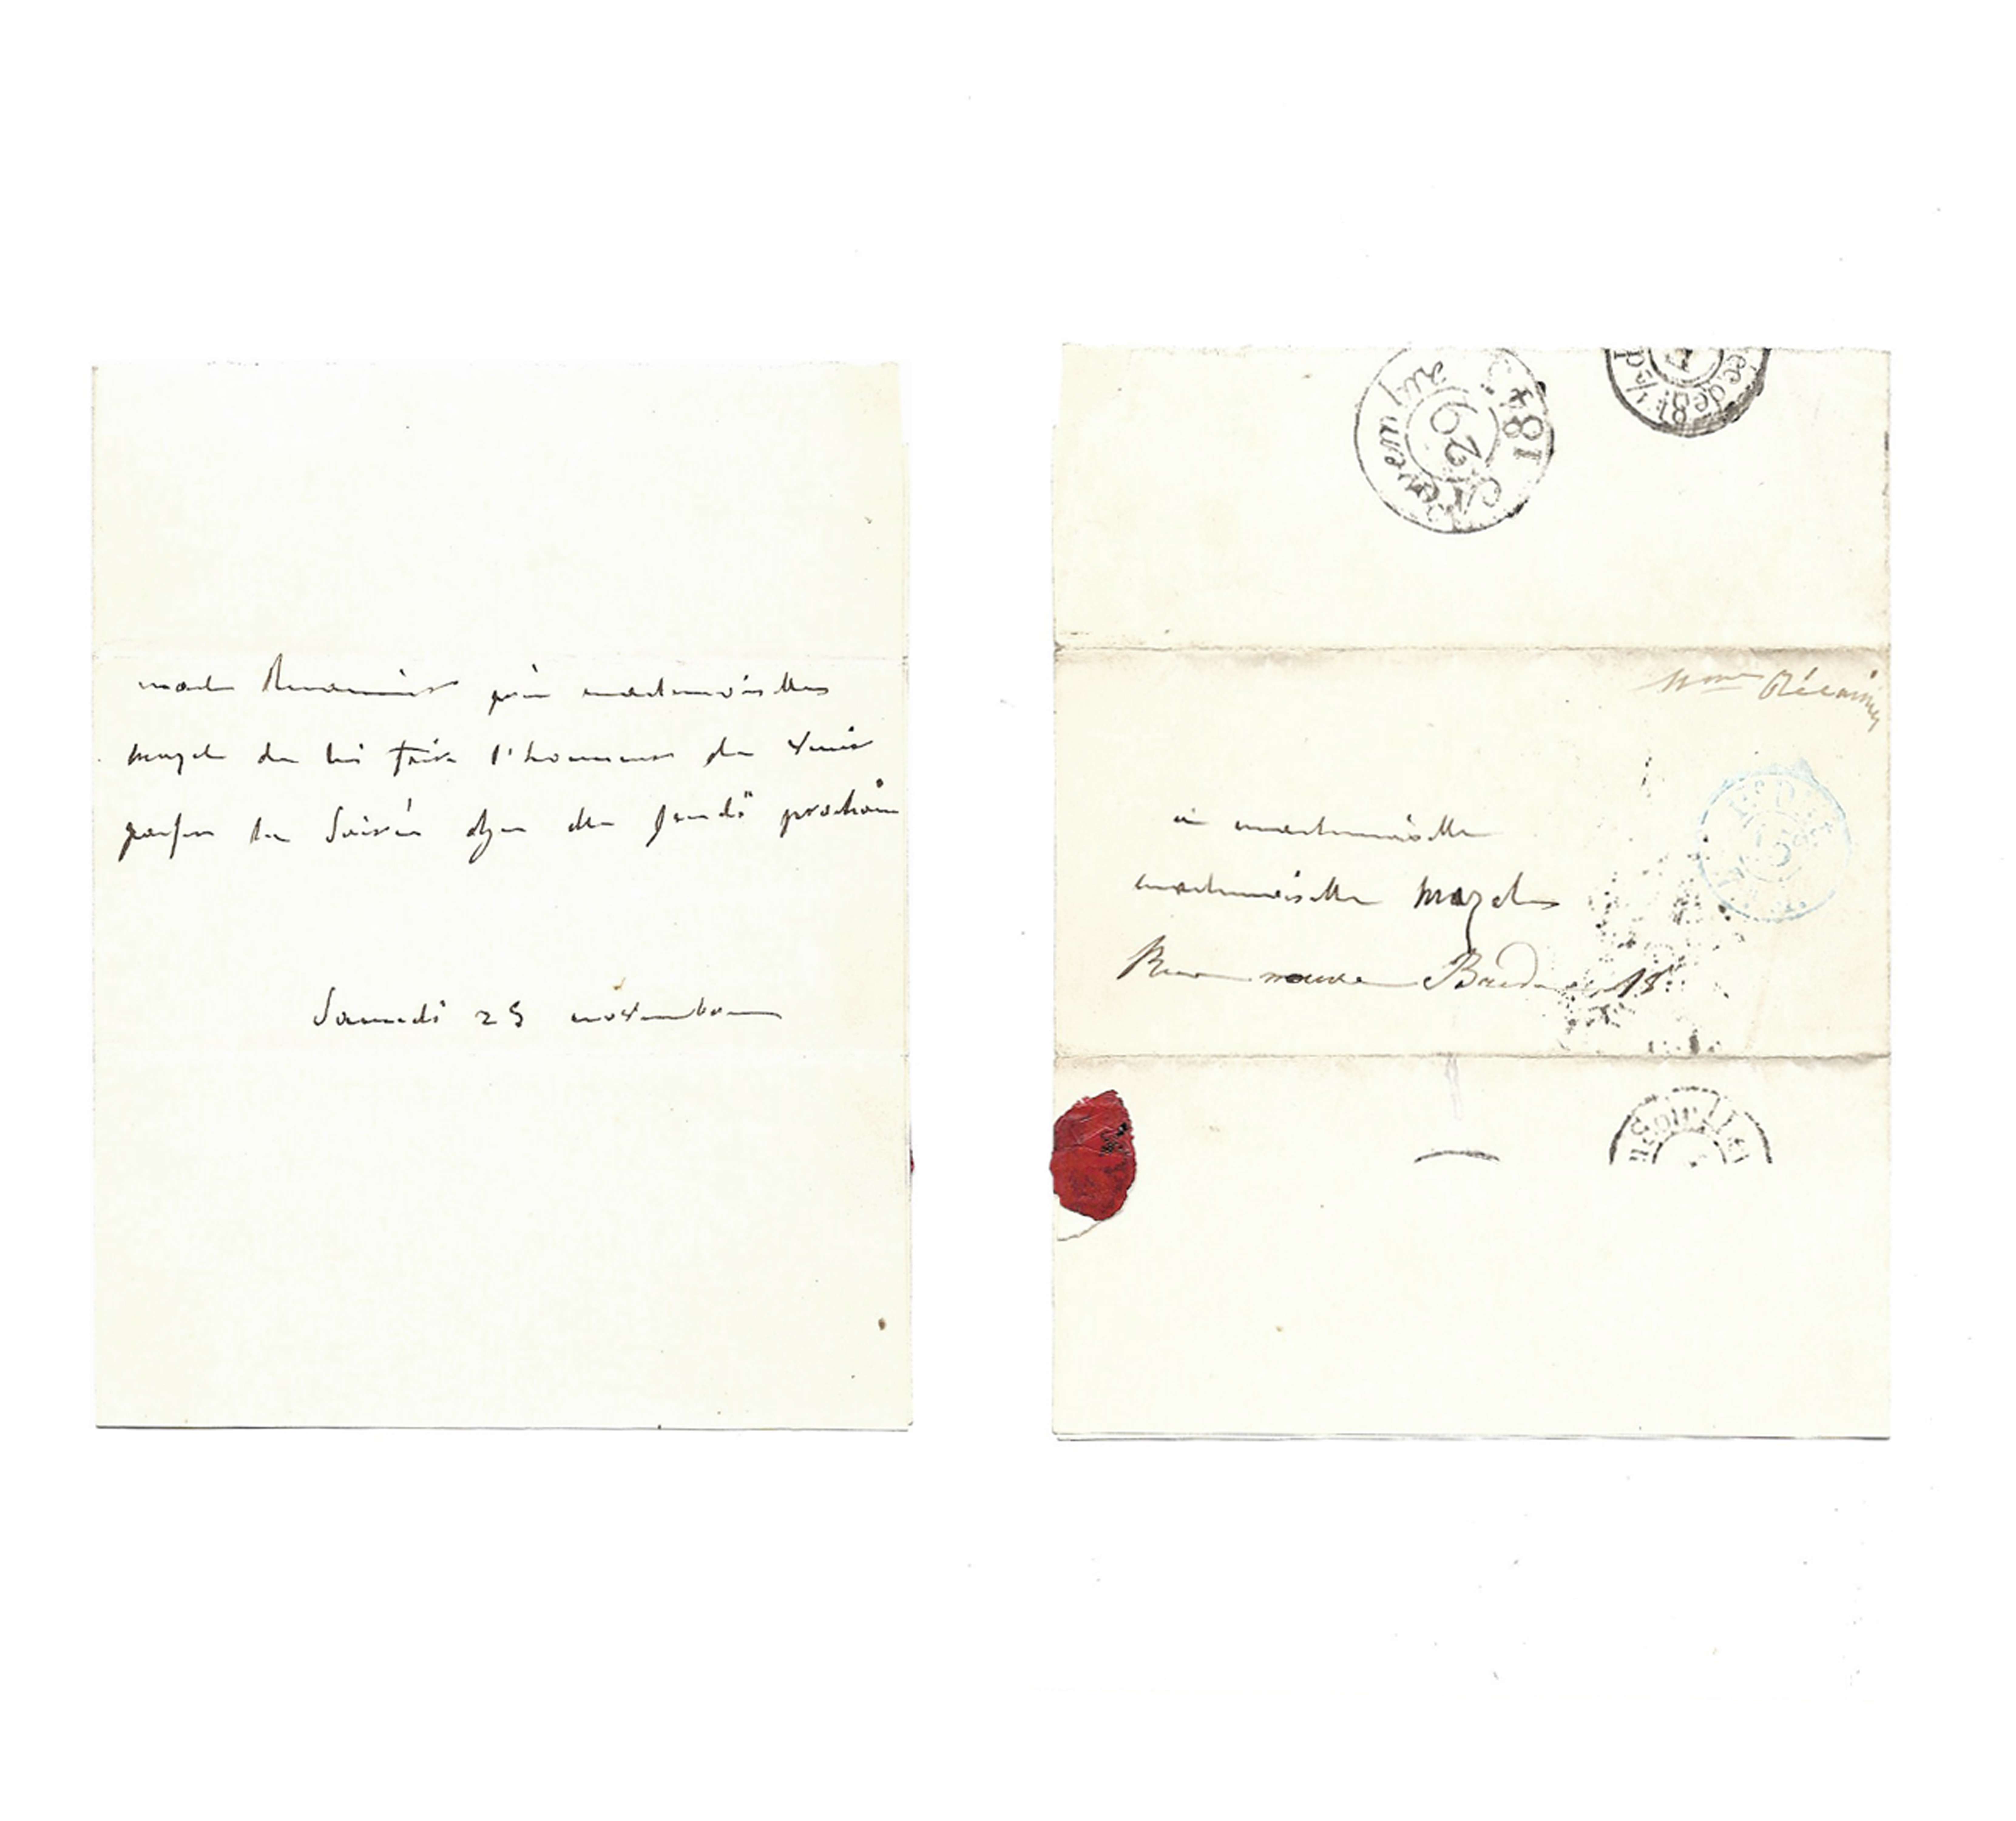 mad Recamier prie mademoiselle
mazel de lui faire l'honneur de venir
passer la soirée chez elle jeudi prochain
Samedi 25 novembre
Novembre 26 184
Mme Récamier
à mademoiselle
mademoiselle mazel
Rue neuve Breda 18